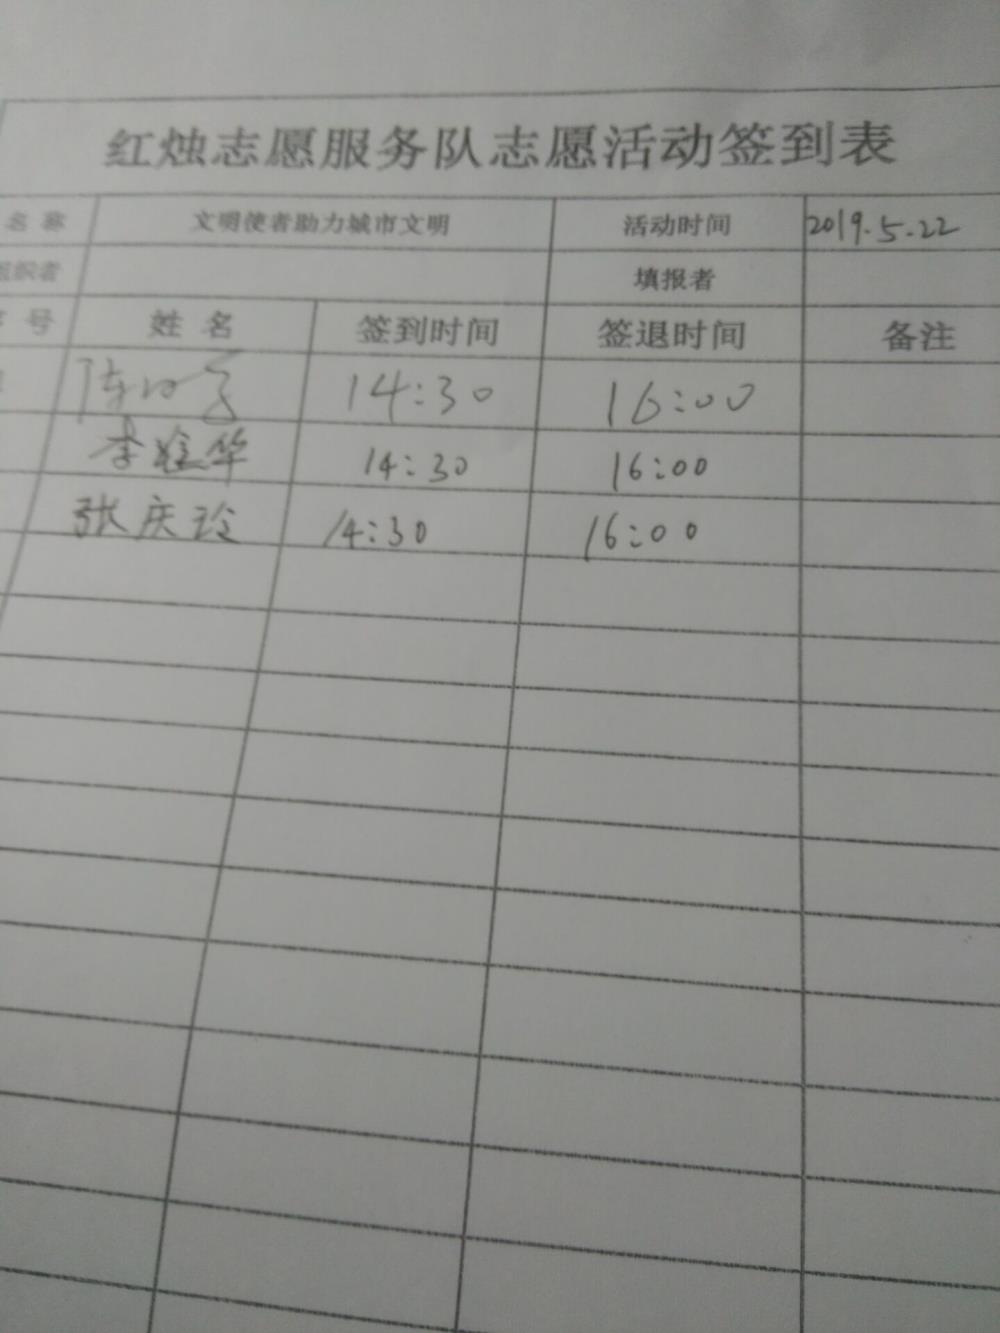 红烛志愿服务队志愿活动签到表
名称 文明使者助力城市文明 活动时间 2019.5.22
组织者 填报者
序号 姓名 签到时间 签退时间 备注
陈 14:30 16:00
李 华 14:30 16:00
张庆玲 14:30 16:00